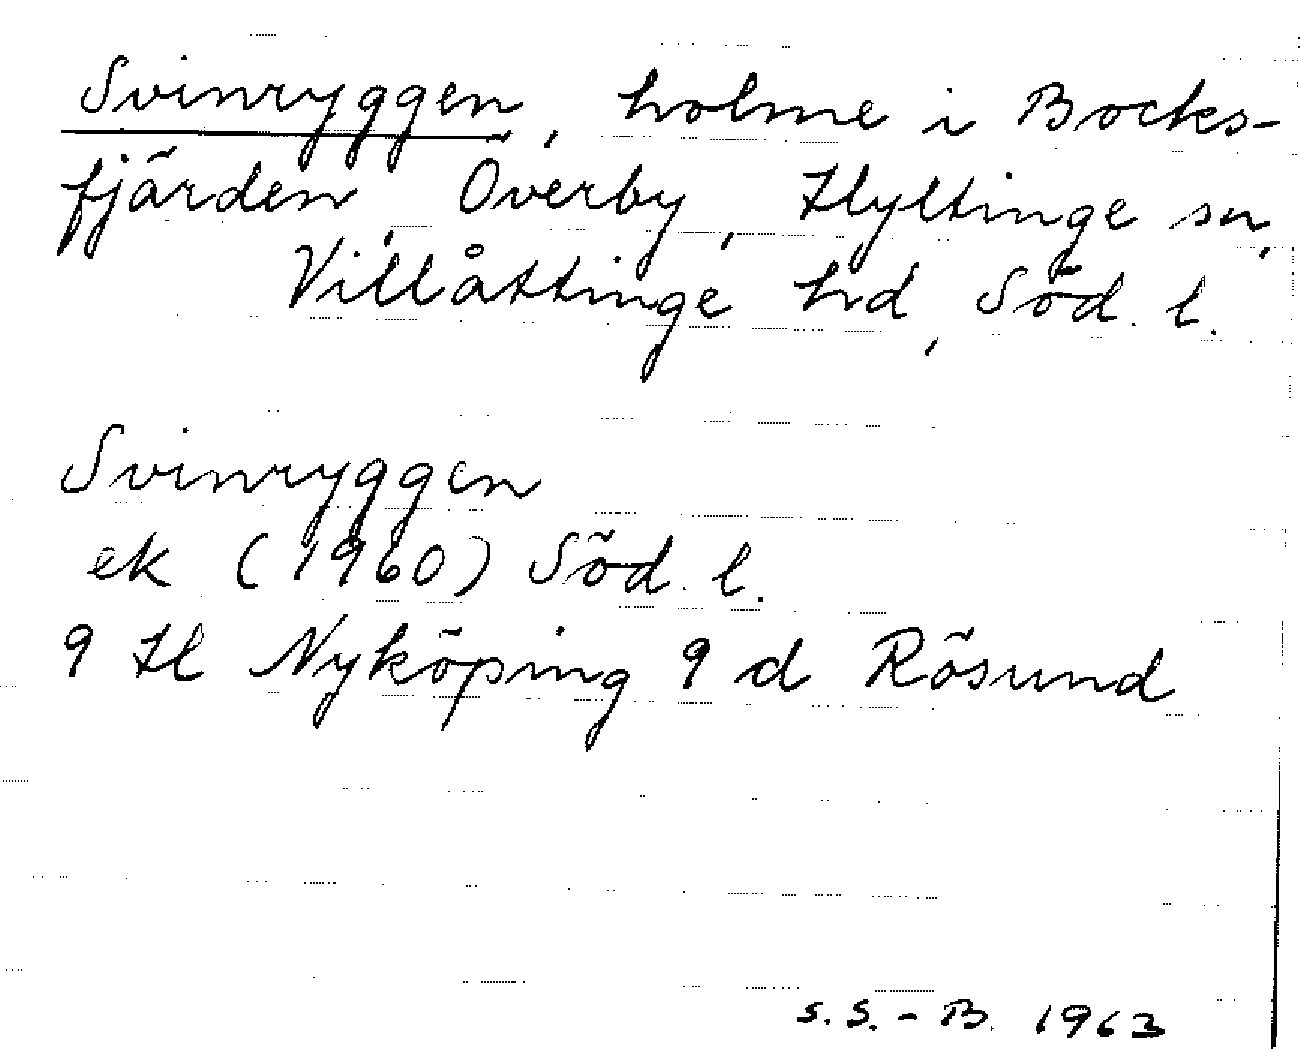 Svinryggen, holme i Bocks-
fjärden, Överby, Hyltinge sn,
Villåttinge hd, Söd. l.
Svinryggen
ek (1960) Söd. l.
9 H Nyköping 9 d Rösund
S. S.-B. 1963